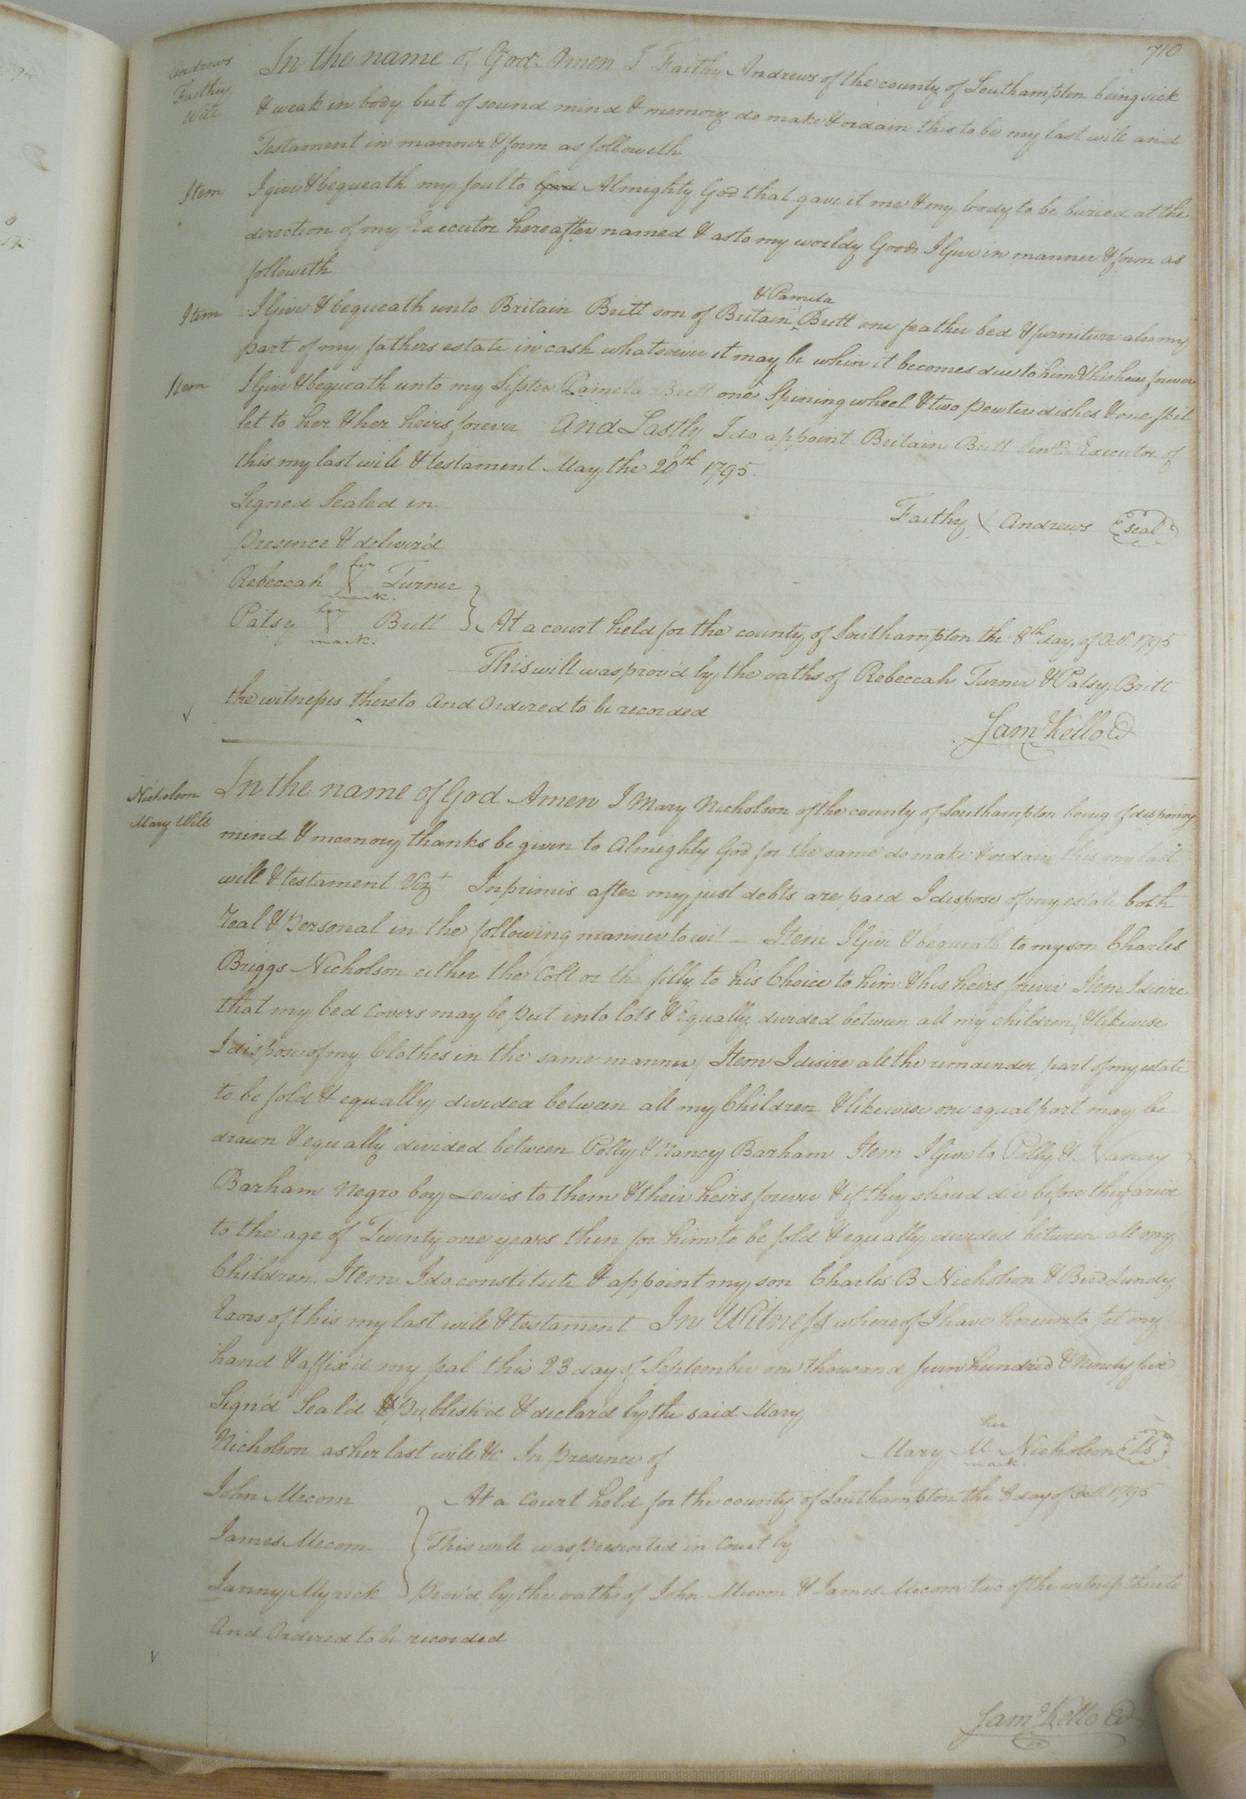 710
Andrews
Faithy
Will
In the name of God Amen I Faithy Andrews of the county of Southampton being sick
& weak in body but of sound mind & memory do make & ordain this to be my last will and
Testament in manner & form as followeth
Item I give & bequeath my soul to God Almighty God that gave it me & my body to be buried at the
direction of my Executor hereafter named & as to my worldy Goods I Give in manner & form as
followeth
& Pamela
Item I Give & bequeath unto Britain Britt son of Britain Britt one feather bed & furniture also my
part of my fathers estate in cash whatsoever it may be when it becomes due to him & his heirs forever
Item I Give & bequeath unto my Sister Pamela Britt one Spining wheel & two pewter dishes & one skil
let to her & her heirs forever And Lastly I do appoint Britain Britt Senr. Executor of
this my last will & testament May the 20th 1795.
Signed Sealed in
Faithy Andrews seal
presence & deliver'd
her
Rebeccah Turner
mark.
her
Patsy Britt
mark.
At a court held for the county of Southampton the 8th day of Oct. 1795
This will was prov'd by the oaths of Rebeccah Turner & Patsy Britt
the witnesses thereto And Ordered to be recorded
Saml Kello
Nicholson
Mary Will
In the name of God Amen I Mary Nicholson of the county of Southampton being of disposing
mind & memory thanks be given to Almighty God for the same do make & ordain this my last
will & testament Vizt Inprimis after my just debts are paid I dispose of my estate both
real & Personal in the following manner to wit Item I Give & bequeath to my son Charles
Briggs Nicholson either the Colt or the filly to his Choice to him & his heirs forever Item I desire
that my bed covers may be put into lots & Equally divided between all my children, & likewise
I dispose of my Clothes in the same manner, Item I desire all the remainder part of my estate
to be sold & equally divided between all my Children & likewise one equal part may be
drawn & equally divided between Polly & Nancy Barham Item I Give to Polly & Nancy
Barham Negro boy Lewis to them & their heirs forever & if they shoud die before they arive
to the age of Twenty one years then for him to be sold & equally divided between all my
Children. Item I do constitute & appoint my son Charles B Nicholson & Bird Lundy
Exors of this my last will & testament In Witness whereof I have hereunto set my
hand & affix'd my seal this 23 day of September one thousand seven hundred & Ninety five
Sign'd Seal'd & Publish'd & declar'd by the said Mary
Nicholson as her last will &c In Presence of
her
Mary M Nicholson LS
mark
John Mecom
At a court held for the county of Southampton the 8 day of Oct. 1795
James Mecom
This will was presented in Court by
Janny Myrick
prov'd by the oaths of John Mecom & James Mecom two of the witness thereto
And Ordered to be recorded
Saml Kello